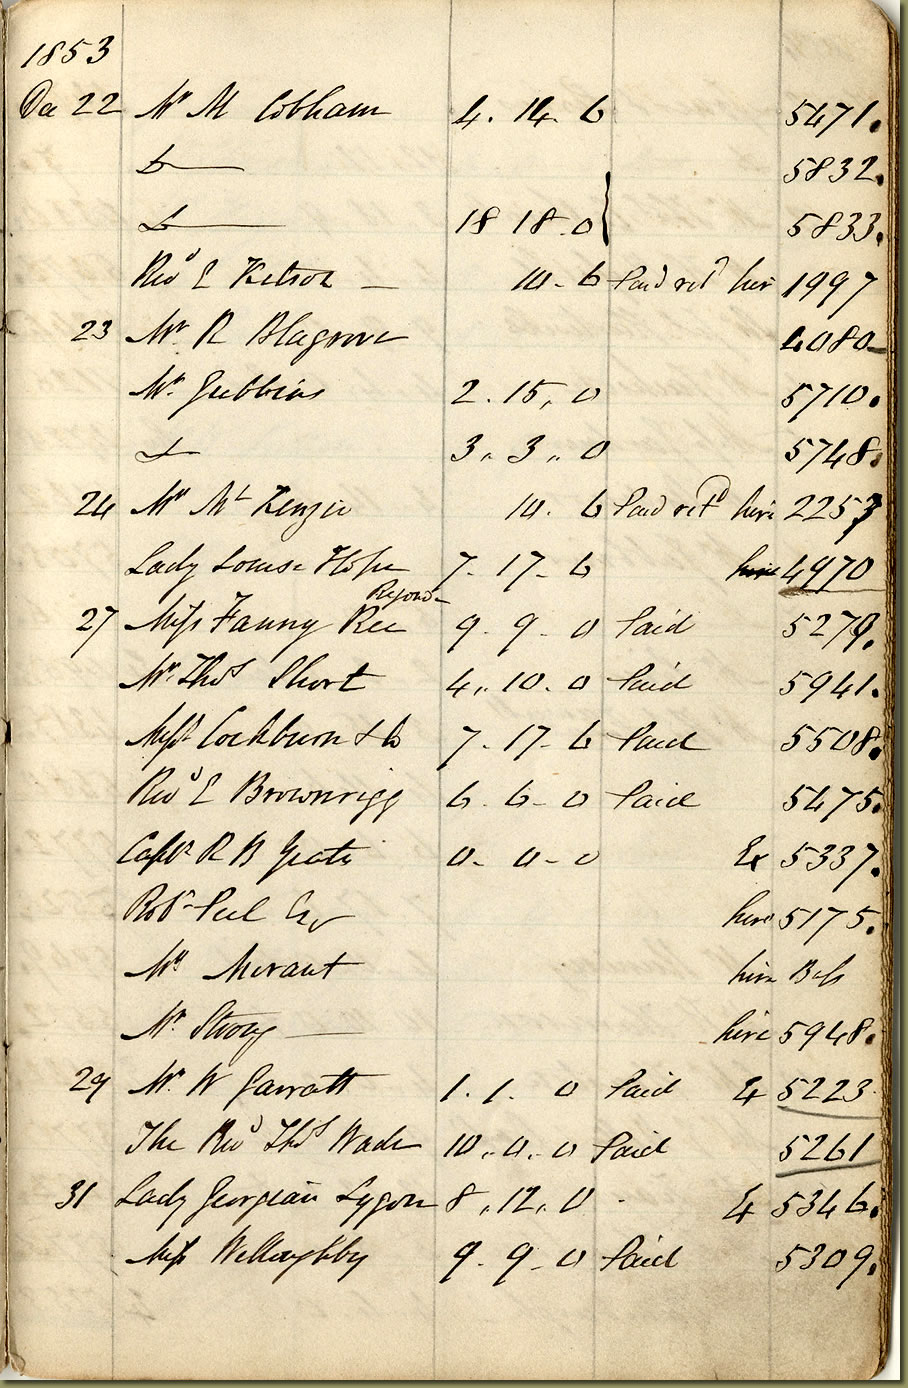 1853
Dec 22 Mr M Cobham 4. 14. 6 5471.
Do 5832.
Do 18 18. 0 } 5833.
Revd E Kelson — 10 - 6 Paid retd hire 1997
23 Mr. R Blagrove 4080-
Mr. Gubbins 2. 15,, 0 5710.
Do 3,, 3,, 0 5748.
24 Mr Mc Kenzie 10. 6 Paid retd hire 2253
Lady Louisa Hope 7 - 17 - 6 hire 4970
27 Miss Fanny Ree 9. 9 - 0 Paid 5279.
Mr. Thos Short 4,, 10. 0 Paid 5941.
Messrs Cockburn & Co 7 - 17 - 6 Paid 5508.
Revd E Brownrigg 6. 6 - 0 Paid 5475.
Captn R B 0 - 0 - 0 Ex 5337.
Robt Peel Esq hire 5175.
Mrs Morant hire
Mr. Strong — hire 5948.
29 Mr. W Garratt 1. 1. 0 Paid 5223
The Revd Thos Wade 10,, 0,, 0 Paid 5261
31 Lady Georgian Lygon 8,, 12,, 0 5346.
Miss Willoughby 9. 9 - 0 Paid 5309.